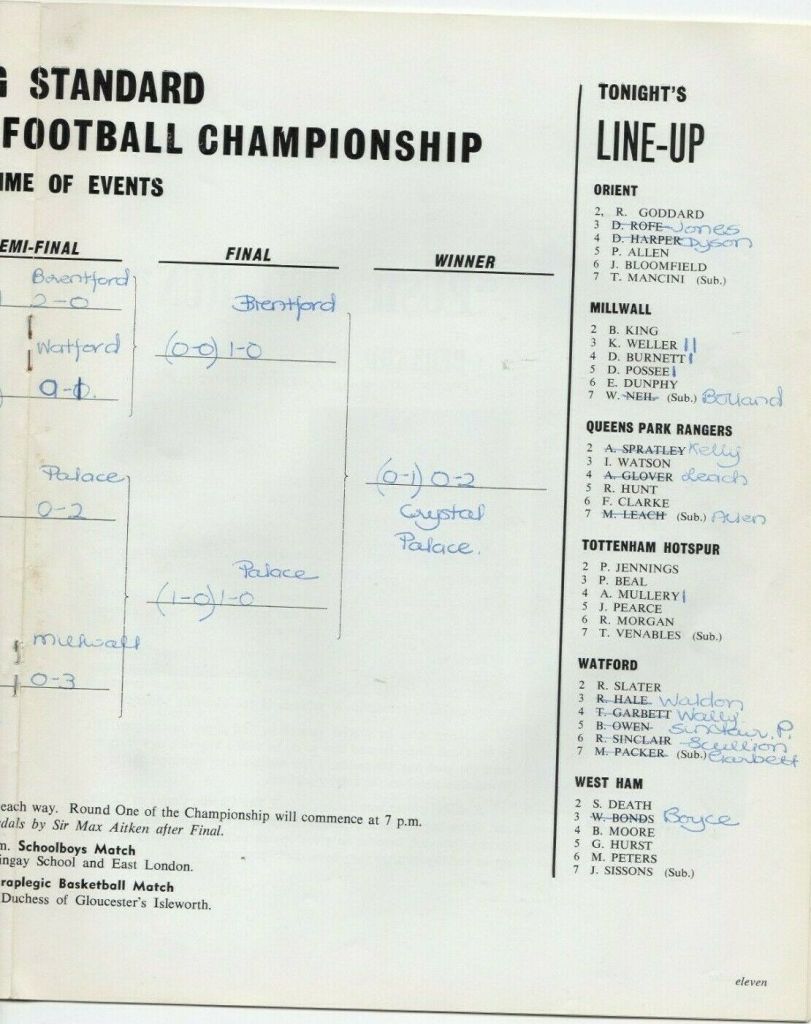 G STANDARD
FOOTBALL CHAMPIONSHIP
IME OF EVENTS
EMI-FINAL
FINAL
WINNER
Brentford
2-0
Watford
0-1.
Palace
0-2
Millwall
0-3
Brentford
(0-0) 1-0
Palace
(1-0) 1-0
(0-1) 0-2
Crystal
Palace.
each way. Round One of the Championship will commence at 7 p.m.
dals by Sir Max Aitken after Final.
m. Schoolboys Match
ingay School and East London.
raplegic Basketball Match
Duchess of Gloucester's Isleworth.
TONIGHT'S
LINE-UP
ORIENT
2, R. GODDARD
3 D. ROFE Jones
4 D. HARPER Dyson
5 P. ALLEN
6 J. BLOOMFIELD
7 T. MANCINI (Sub.)
MILLWALL
2 B. KING
3 K. WELLER ||
4 D. BURNETT |
5 D. POSSEE |
6 E. DUNPHY
7 W. NEIL (Sub.) Bolland
QUEENS PARK RANGERS
2 A. SPRATLEY Kelly
3 I. WATSON
4 A. GLOVER Leach
5 R. HUNT
6 F. CLARKE
7 M. LEACH (Sub.) Allen
TOTTENHAM HOTSPUR
2 P. JENNINGS
3 P. BEAL
4 A. MULLERY |
5 J. PEARCE
6 R. MORGAN
7 T. VENABLES (Sub.)
WATFORD
2 R. SLATER
3 R. HALE Waldon
4 T. GARBETT Wally
5 B. OWEN Sinclair. P.
6 R. SINCLAIR Scullion
7 M. PACKER (Sub.) Garbett
WEST HAM
2 S. DEATH
3 W. BONDS Boyce
4 B. MOORE
5 G. HURST
6 M. PETERS
7 J. SISSONS (Sub.)
eleven